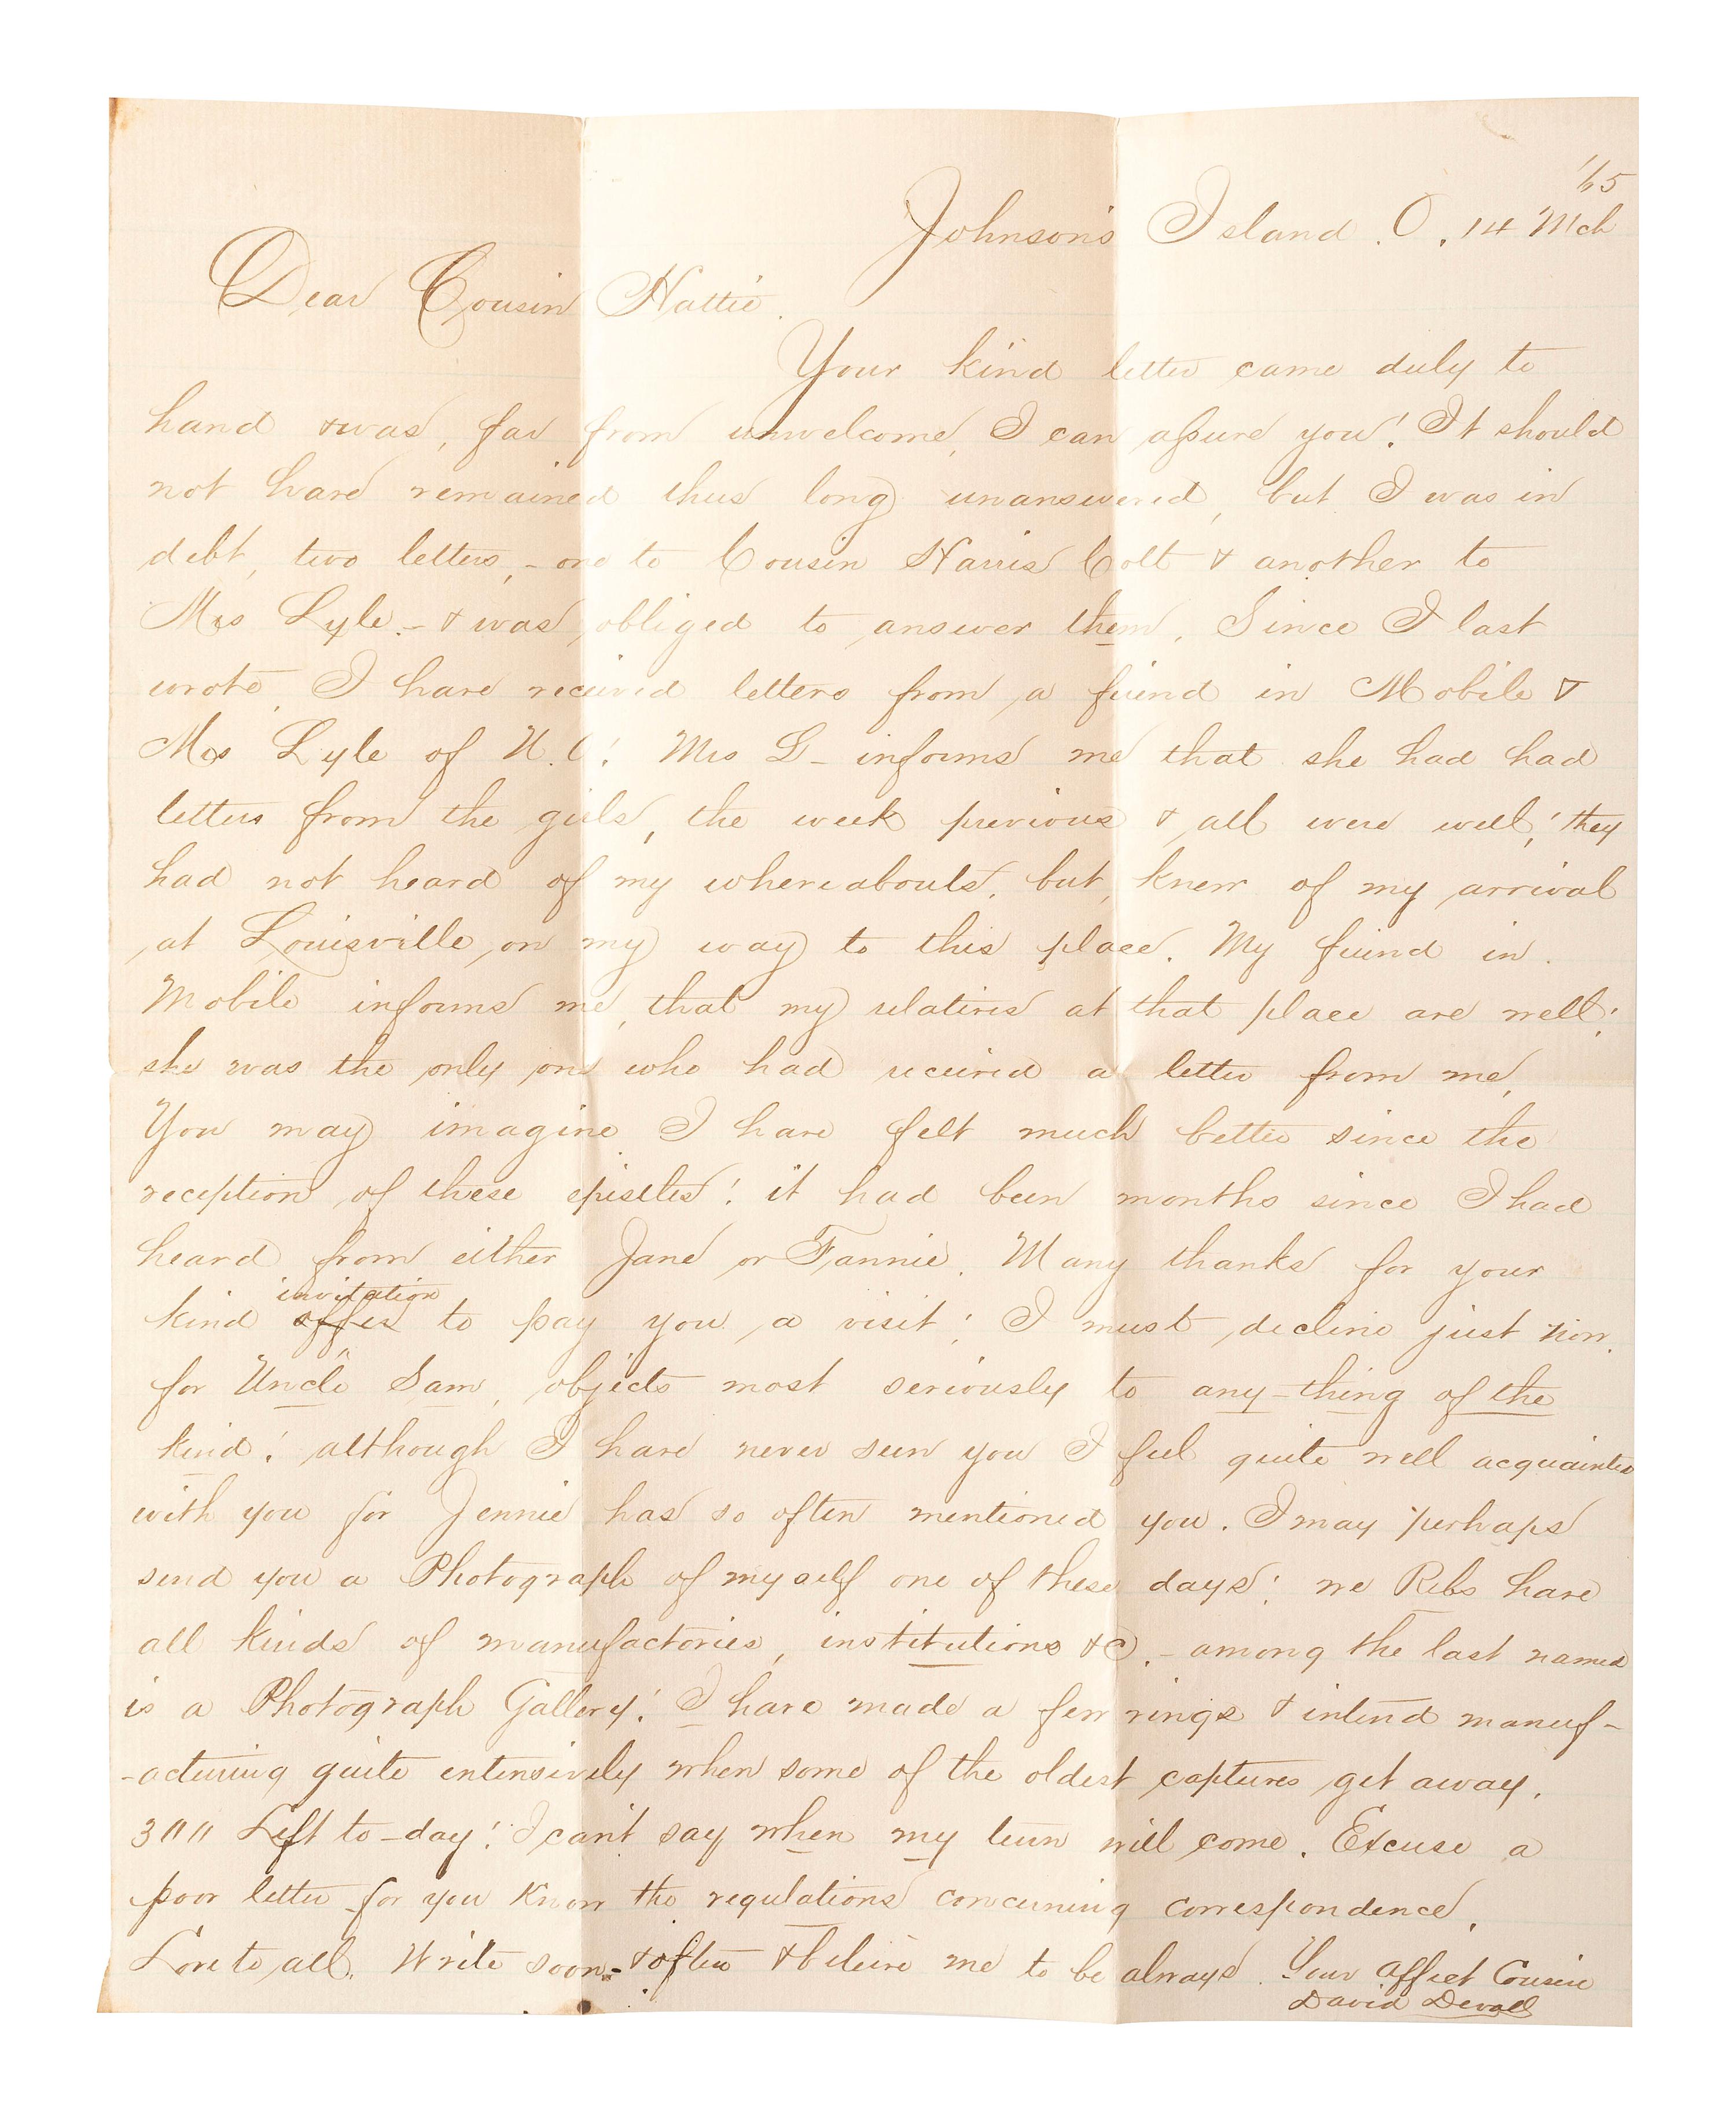 '65
Johnson's Island. O. 14 Mch
Dear Cousin Hattie.
Your kind letter came duly to
hand & was, far from unwelcome, I can assure you! It should
not have remained thus long unanswered, but I was in
debt, two letters, - one to Cousin Harris Colt & another to
Mrs Lyle. - & was obliged to answer them. Since I last
wrote, I have received letters from a friend in Mobile &
Mrs Lyle of N.C! Mrs L - informs me that she had had
letters from the girls, the week previous & all were well; they
had not heard of my whereabouts, but, knew of my arrival
at Louisville, on my way to this place. My friend in
Mobile informs me, that my relatives at that place are well;
she was the only one who had received a letter from me,
You may imagine I have felt much better since the
reception of these epistles! it had been months since I had
heard from either Jane or Fannie. Many thanks for your
invitation
kind offer to pay you a visit; I must decline just now.
for "Uncle Sam, objects most seriously to any-thing of the
kind! although I have never seen you I feel quite well acquainted
with you for Jennie has so often mentioned you. I may perhaps
send you a Photograph of myself one of these days; we Rebs have
all kinds of manufactories, institutions &c. - among the last named
is a Photograph Gallery! I have made a few rings & intend manuf-
-acturing quite extensively when some of the oldest captures get away.
3"" Left to-day! I can't say when my turn will come. Excuse a
poor letter for you know the regulations concerning correspondence.
Love to all. Write soon - & often & believe me to be always. Your affect Cousin
David Devall